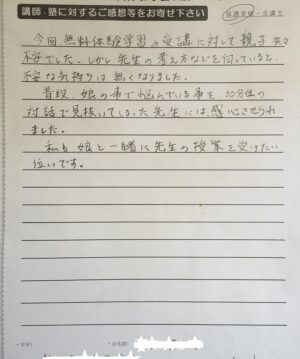 講師・塾に対するご感想等をお寄せ下さい
保護者様・受講生
今回無料体験学習の受講に対して親子共々
不安でした。しかし先生の考え方などを伺っていると、
不安な気持ちは無くなりました。
普段、娘の事で悩んでいる事を30分位の
対話で見抜いてしまった先生には感心させられ
ました。
私も娘と一緒に先生の授業を受けたい
位いです。
・学年(
・お名前(